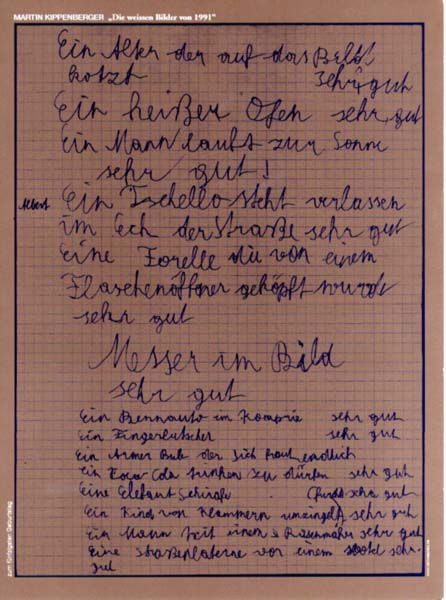 MARTIN KIPPENBERGER „Die weissen Bilder von 1991"
Ein Alter der auf das Beld
kotzt sehr gut
Ein heißer Ofen sehr gut
Ein Mann lauft zur Sonne
sehr gut!
Albert
Ein Tschello steht verlassen
im Eck der Straße sehr gut
Eine Forelle die von einem
Flaschenöffner geköpft wurdt
sehr gut
Messer im Bild
sehr gut
Ein Rennauto im sehr gut
Ein Fingerlutscher sehr gut
Ein Armer Bub der sich traut endlich
ein Coca-Cola trinken zu dürfen sehr gut
Eine Elefant sehr gut
Ein Kind von Klammern umzingelt sehr gut
Ein Mann mit einem Rasenmäher sehr gut
Eine Straßenlaterne vor einem sehr
gut
zum fünfzigsten Geburtstag